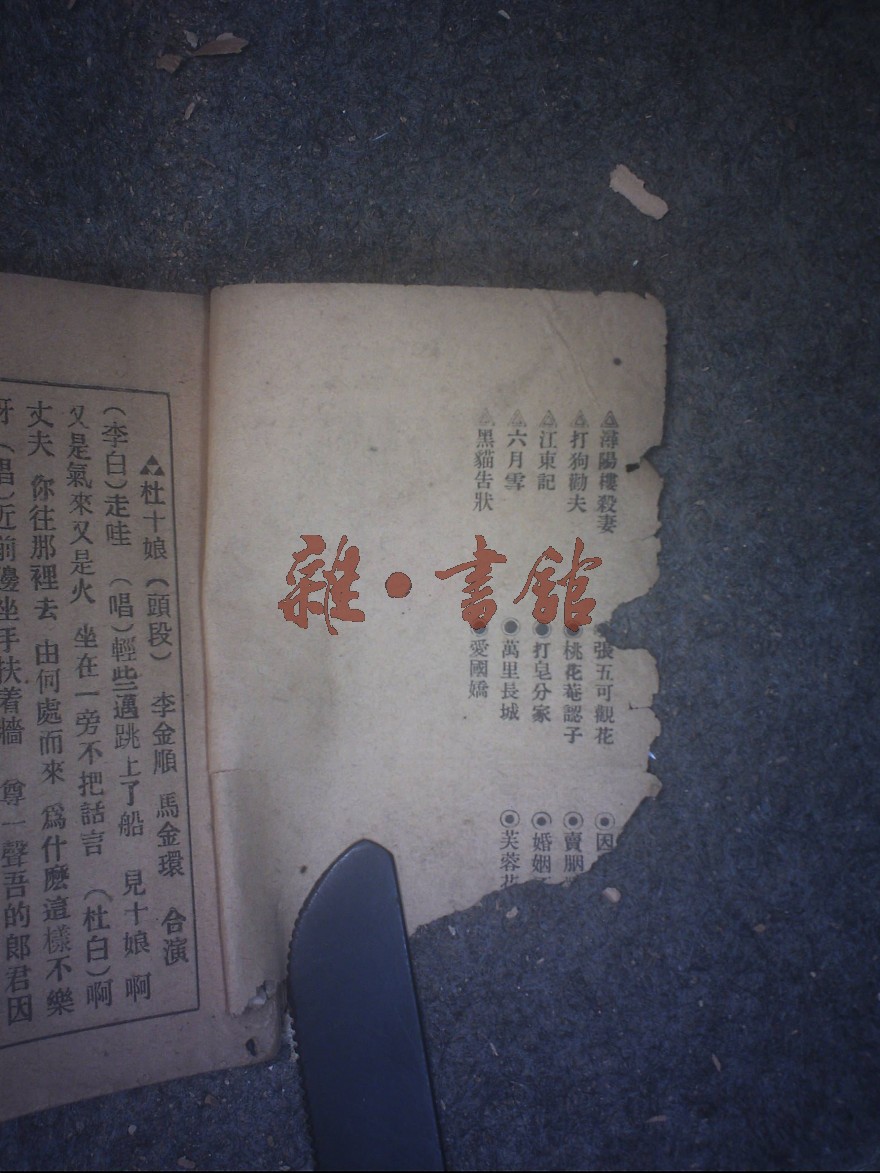 △潯陽樓殺妻
△打狗勸夫
△江東記
△六月雪
△黑貓告狀
◉張五可觀花
◉桃花菴認子
◉打皂分家
◉萬里長城
◉愛國嬌
◉因
◉賣胭
◉婚姻
◉芙蓉花
雜•書館
杜十娘(頭段) 李金順 馬金環 合演
(李白)走哇 (唱)輕些邁跳上了船 見十娘 啊
又是氣來又是火 坐在一旁不把話言 (杜白)啊
丈夫 你往那裡去 由何處而來 爲什麽這樣不樂
呀(唱)近前邊坐手扶着牆 尊一聲吾的郎君因